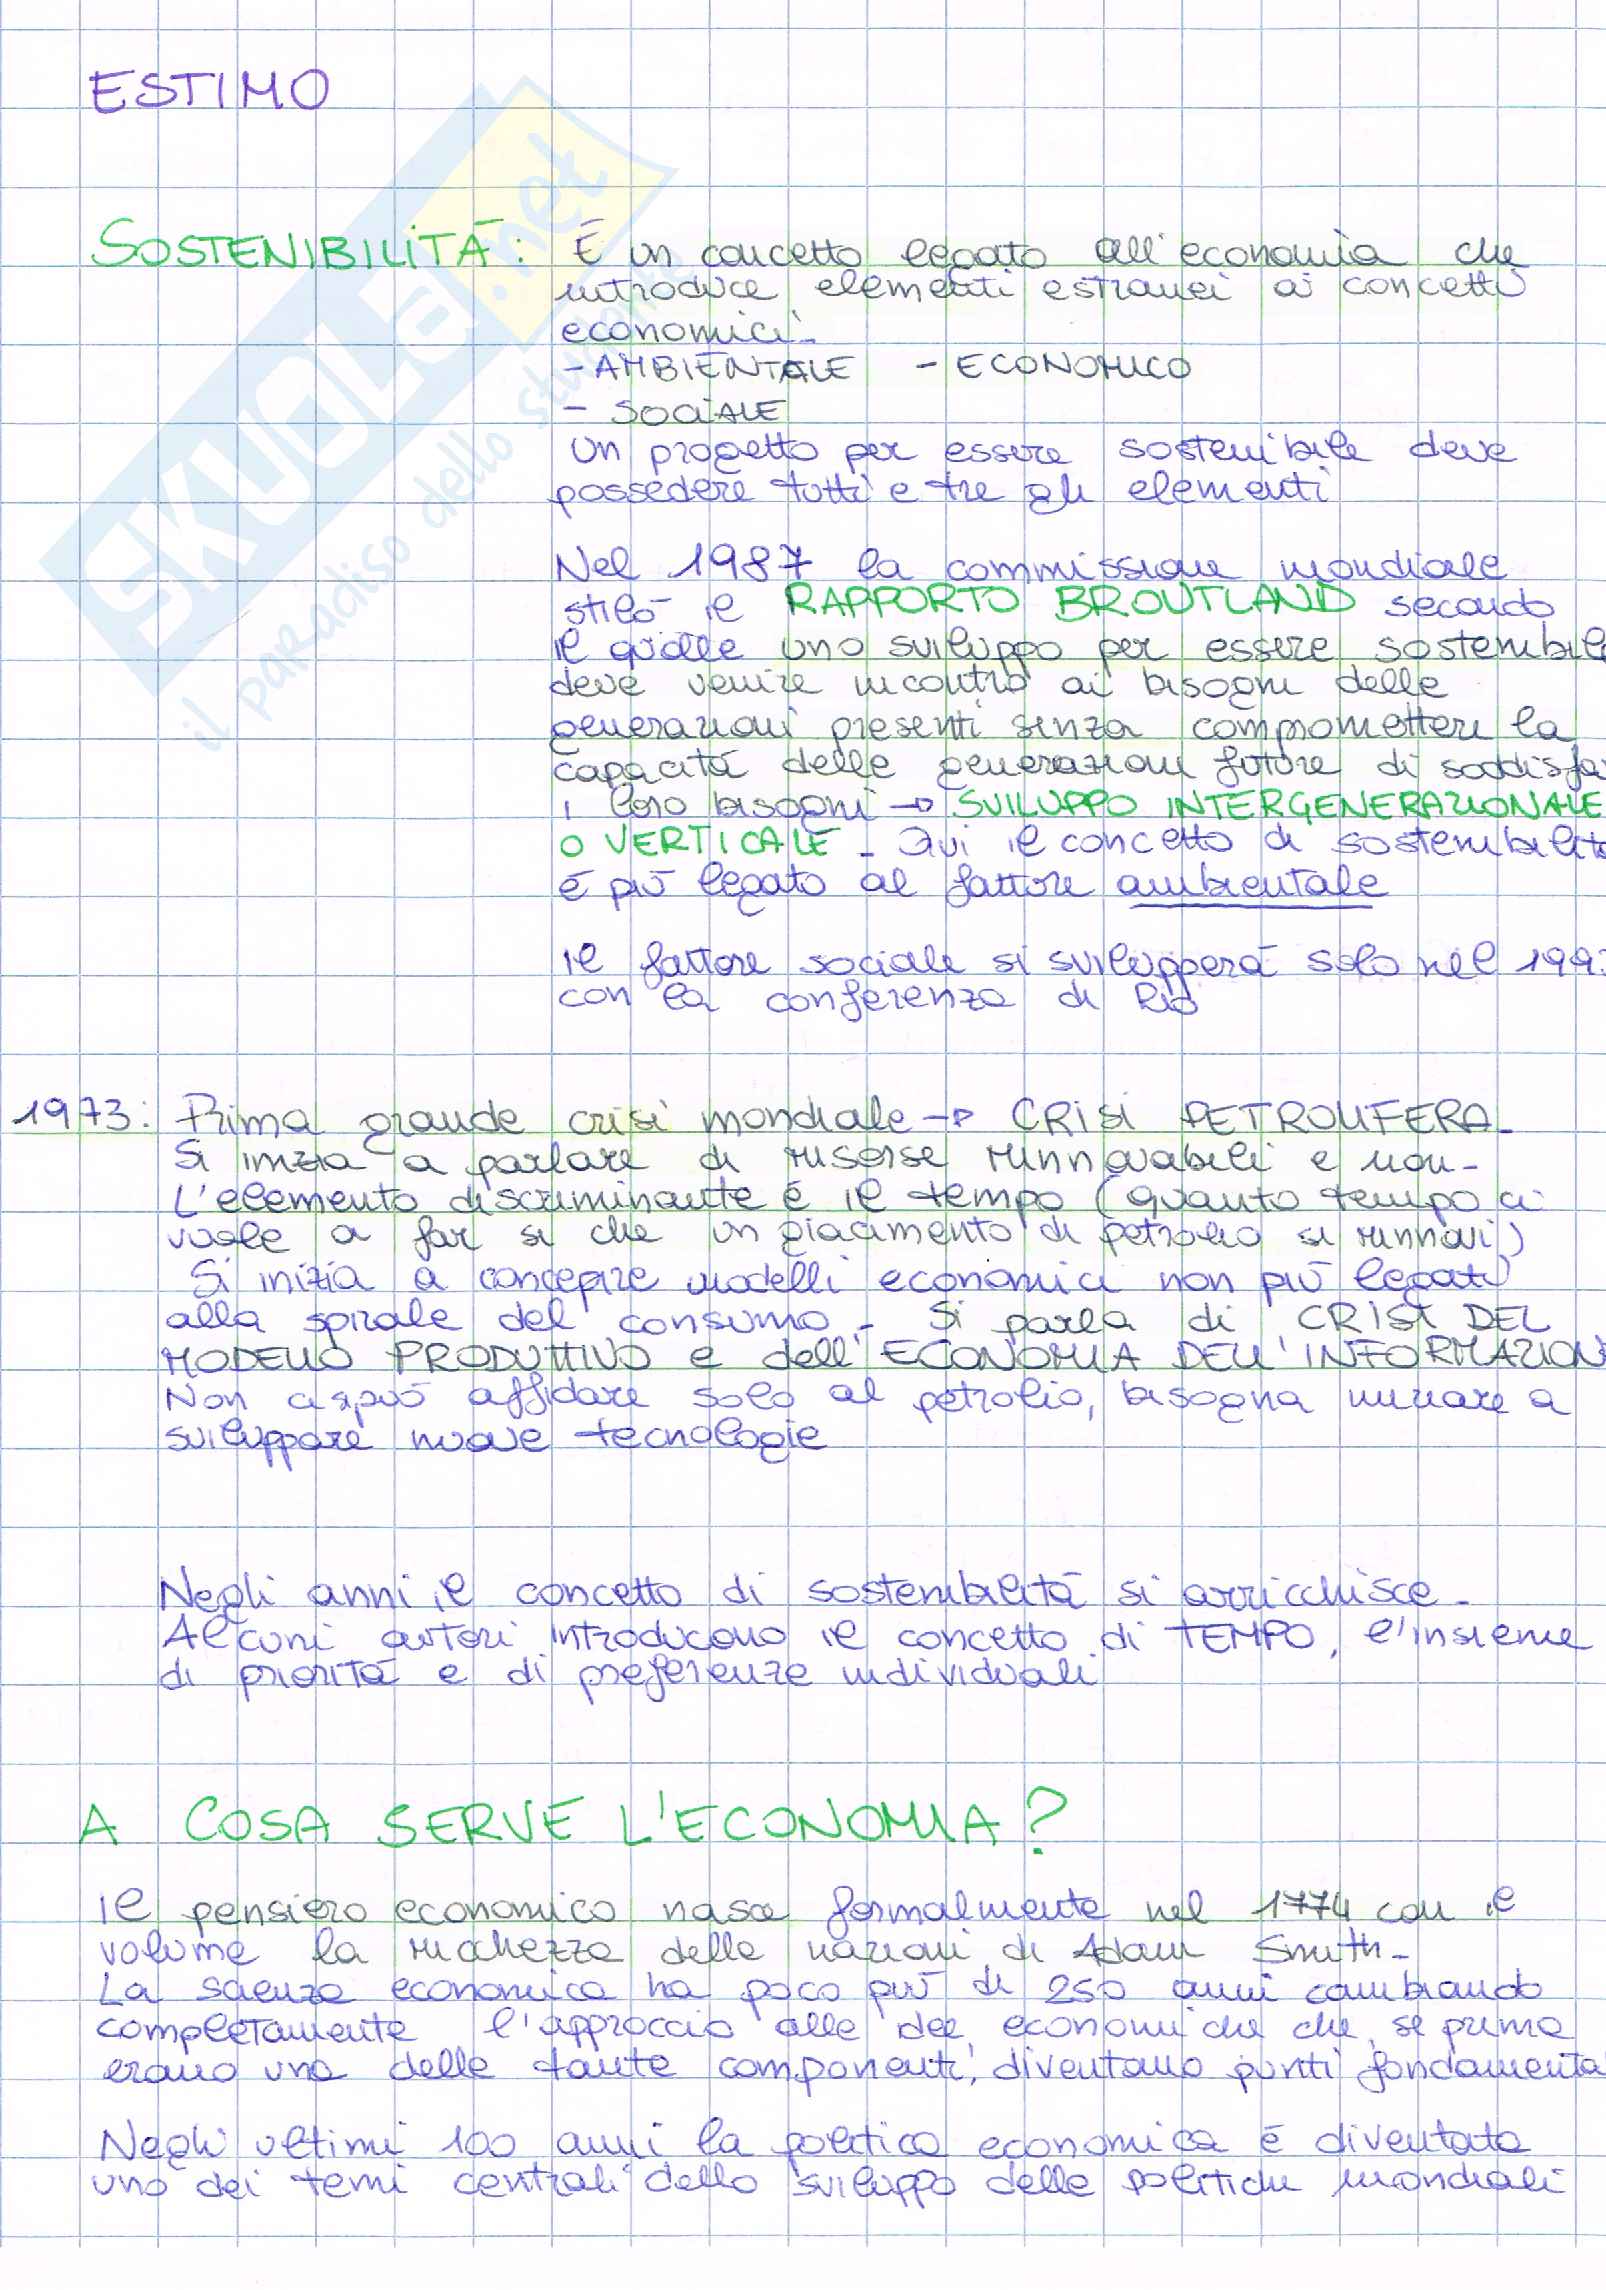 ESTIMO
SKUOLA.net
il paradiso dello studente
SOSTENIBILITÀ: È un concetto legato all'economia che
introduce elementi estranei ai concetti
economici.
- AMBIENTALE - ECONOMICO
- SOCIALE
Un progetto per essere sostenibile deve
possedere tutti e tre gli elementi
Nel 1987 la commissione mondiale
stilò il RAPPORTO BROUTLAND secondo
il quale uno sviluppo per essere sostenibile
deve venire incontro ai bisogni delle
generazioni presenti senza compromettere la
capacità delle generazioni future di soddisfa
i loro bisogni → SVILUPPO INTERGENERAZIONALE
O VERTICALE - Qui il concetto di sostenibilità
è più legato al fattore ambientale
Il fattore sociale si svilupperà solo nel 199
con la conferenza di Rio
1973: Prima grande crisi mondiale → CRISI PETROLIFERA.
Si inizia a parlare di risorse rinnovabili e non.
L'elemento discriminante è il tempo (quanto tempo ci
vuole a far si che un giacimento di petrolio si rinnovi)
Si inizia a concepire modelli economici non più legati
alla spirale del consumo. Si parla di CRISI DEL
MODELLO PRODUTTIVO e dell'ECONOMIA DELL'INFORMAZION
Non ci si può affidare solo al petrolio, bisogna iniziare a
sviluppare nuove tecnologie
Negli anni il concetto di sostenibilità si arricchisce.
Alcuni autori introducono il concetto di TEMPO, l'insieme
di priorità e di preferenze individuali
A COSA SERVE L'ECONOMIA?
Il pensiero economico nasce formalmente nel 1774 con il
volume la ricchezza delle nazioni di Adam Smith.
La scienza economica ha poco più di 250 anni cambiando
completamente l'approccio alle idee economiche che, se prima
erano una delle tante componenti, diventano punti fondamenta
Negli ultimi 100 anni la politica economica è diventata
uno dei temi centrali dello sviluppo delle politiche mondiali